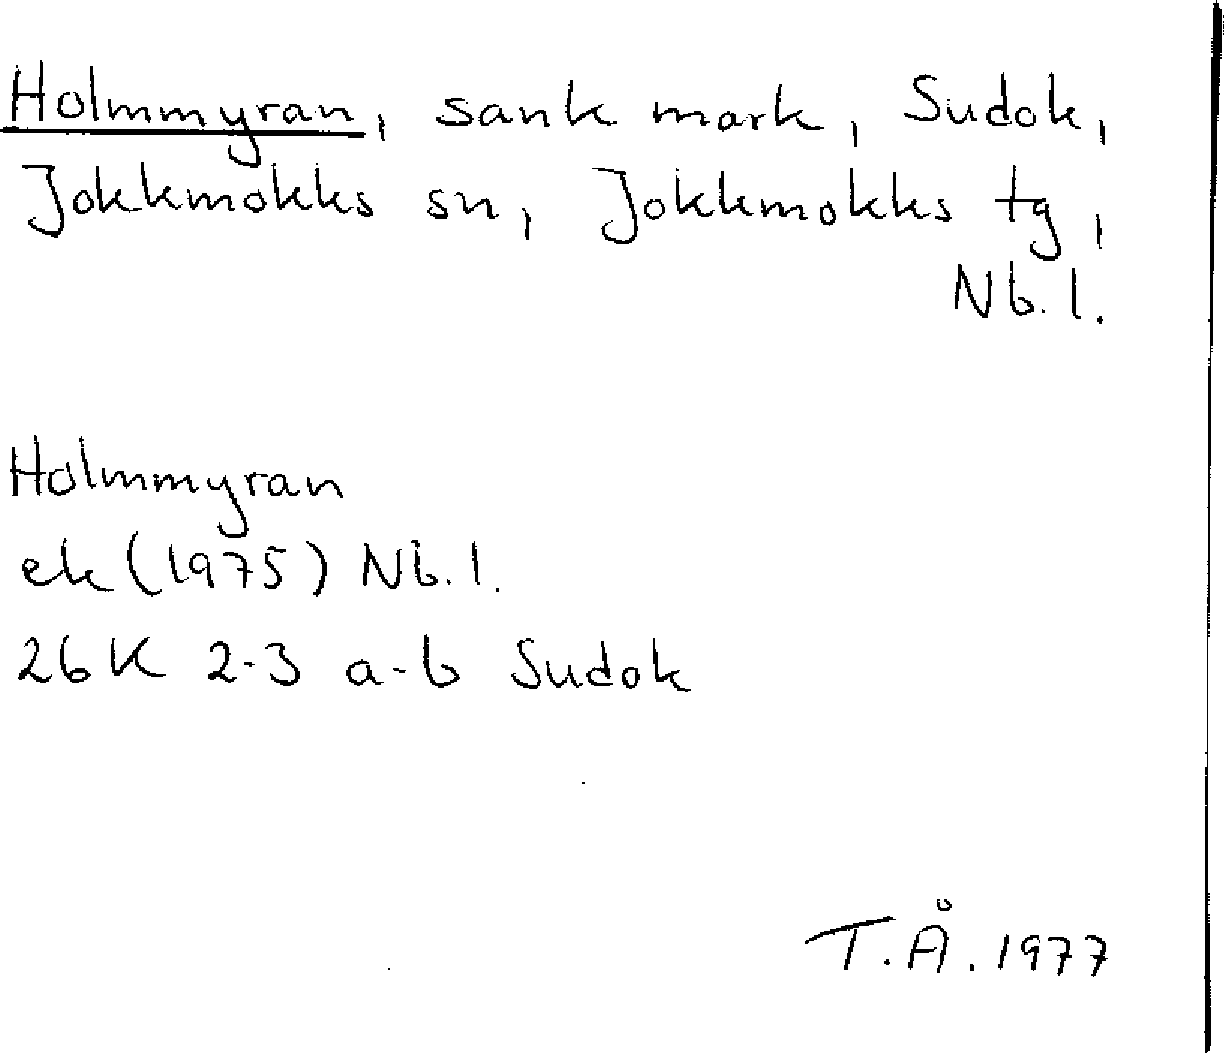 Holmmyran, sank mark, Sudok,
Jokkmokks sn, Jokkmokks tg,
Nb. l.
Holmmyran
ek (1975) Nb. l.
26K 2-3 a-b Sudok
T.Å. 1977